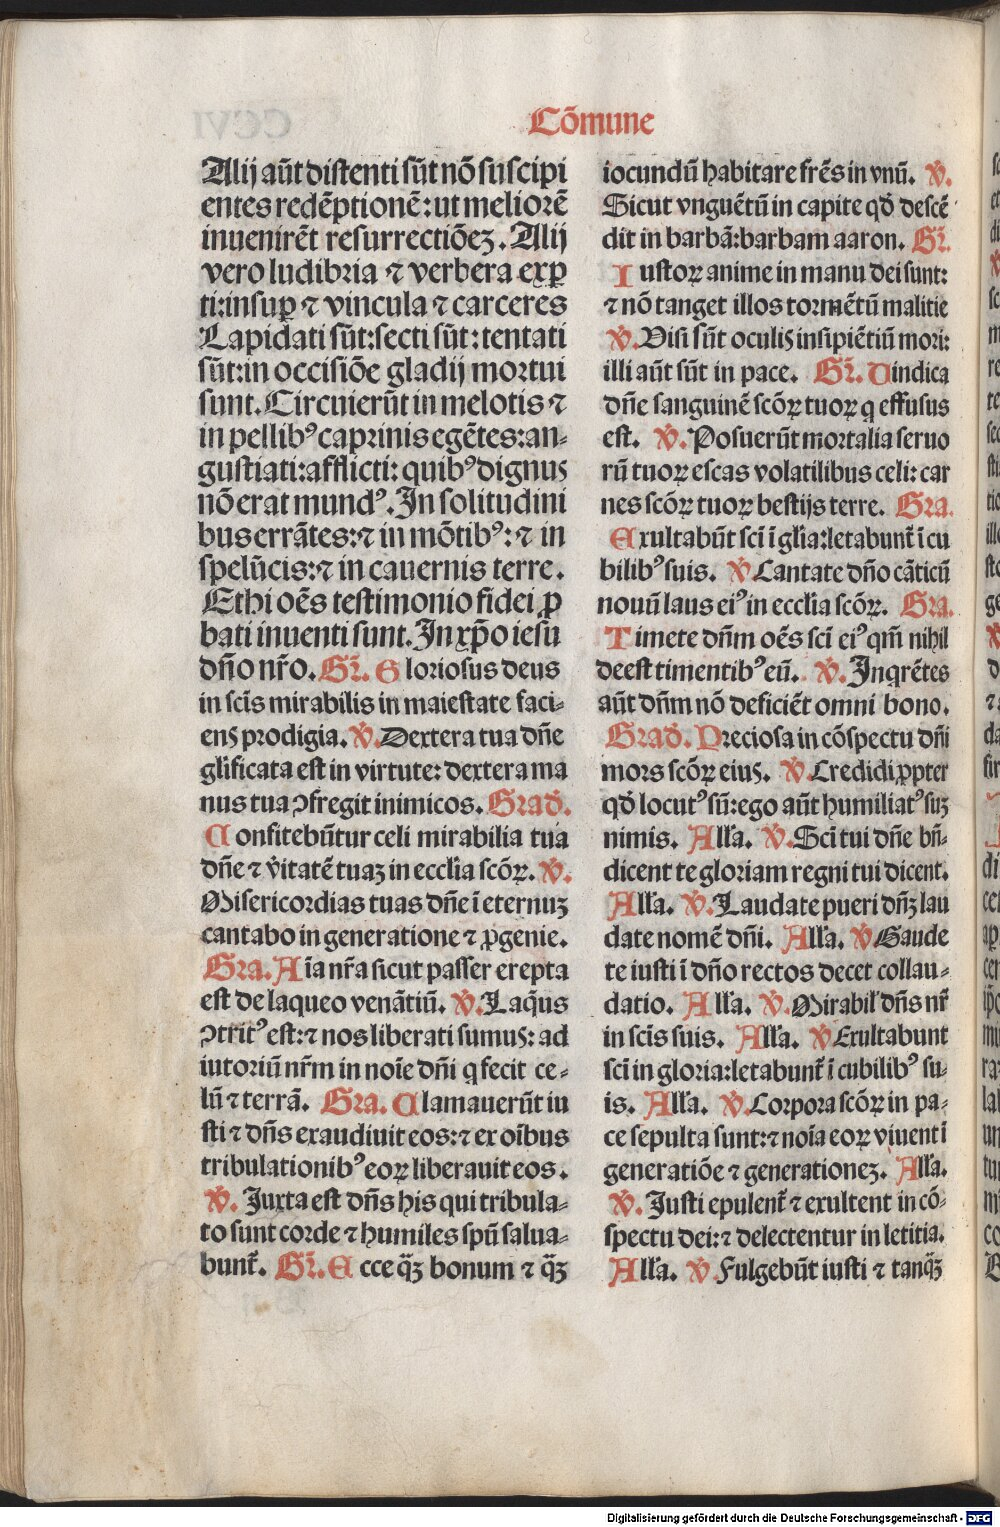 Cōmune
Alij aūt distenti sūt nō suscipi
entes redēptionē: ut meliorē
inuenirēt resurrectiōeꝫ. Alij
vero ludibria ⁊ verbera exp̱
ti:insuꝑ ⁊ vincula ⁊ carceres
Lapidati sūt:secti sūt: tentati
sūt:in occisiōe gladij mortui
sunt. Circuierūt in melotis ⁊
in pellibꝰ caprinis egētes:an-
gustiati:afflicti: quibꝰ dignus
nō erat mundꝰ. In solitudini
bus errātes:⁊ in mōtibꝰ: ⁊ in
spelūcis:⁊ in cauernis terre.
Et hi oēs testimonio fidei ꝓ
bati inuenti sunt. In xp̄o iesu
dn̄o nr̄o. Gr̄. Gloriosus deus
in scīs mirabilis in maiestate faci-
ens prodigia. ℣. Dextera tua dn̄e
glificata est in virtute: dextera ma
nus tua ꝯfregit inimicos. Grad̄.
Confitebūtur celi mirabilia tua
dn̄e ⁊ v̄itatē tuaꝫ in ecclīa scōꝝ. ℣.
Misericordias tuas dn̄e ī eternuꝫ
cantabo in generatione ⁊ ꝓgenie.
Gra. Aīa nr̄a sicut passer erepta
est de laqueo venātiū. ℣. Laq̄us
ꝯtritꝰ est:⁊ nos liberati sumus: ad
iutoriū nr̄m in noīe dn̄i q fecit ce-
lū ⁊ terrā. Gra. Clamauerūt iu
sti ⁊ dn̄s exaudiuit eos:⁊ ex oībus
tribulationibꝰ eoꝝ liberauit eos.
℣. Juxta est dn̄s his qui tribula-
to sunt corde ⁊ humiles spū salua-
bunt̄. Gr̄. Ecce q̄ꝫ bonum ⁊ q̄ꝫ
iocundū habitare fr̄es in vnū. ℣.
Sicut vnguētū in capite qd̄ descē
dit in barbā:barbam aaron. Gr̄.
Iustoꝝ anime in manu dei sunt:
⁊ nō tanget illos tormētū malitie
℣. Visi sūt oculis insipiētiū mori:
illi aūt sūt in pace. Gr̄. Vindica
dn̄e sanguinē scōꝝ tuoꝝ q effusus
est. ℣. Posuerūt mortalia seruo
rū tuoꝝ escas volatilibus celi: car
nes scōꝝ tuoꝝ bestijs terre. Gra.
Exultabūt scī ī glīa:letabunt̄ ī cu
bilibꝰ suis. ℣ Cantate dn̄o cāticū
nouū laus eiꝰ in ecclīa scōꝝ. Gra.
Timete dn̄m oēs scī eiꝰ qm̄ nihil
deest timentibꝰ eū. ℣. Inqrētes
aūt dn̄m nō deficiēt omni bono.
Grad̄. Preciosa in cōspectu dn̄i
mors scōꝝ eius. ℣. Credidi ꝓpter
qd̄ locutꝰ sū:ego aūt humiliatꝰ suꝫ
nimis. All̄a. ℣. Scī tui dn̄e bn̄-
dicent te gloriam regni tui dicent.
All̄a. ℣. Laudate pueri dn̄ꝫ lau
date nomē dn̄i. All̄a. ℣ Gaude
te iusti ī dn̄o rectos decet collau-
datio. All̄a. ℣. Mirabil̄ dn̄s nr̄
in scīs suis. All̄a. ℣ Exultabunt
scī in gloria:letabunt̄ ī cubilibꝰ su-
is. All̄a. ℣. Corpora scōꝝ in pa-
ce sepulta sunt:⁊ noīa eoꝝ viuent ī
generatiōe ⁊ generationeꝫ. All̄a.
℣. Iusti epulent̄ ⁊ exultent in cō-
spectu dei:⁊ delectentur in letitia.
All̄a. ℣. Fulgebūt iusti ⁊ tanq̄ꝫ
Digitalisierung gefördert durch die Deutsche Forschungsgemeinschaft - DFG